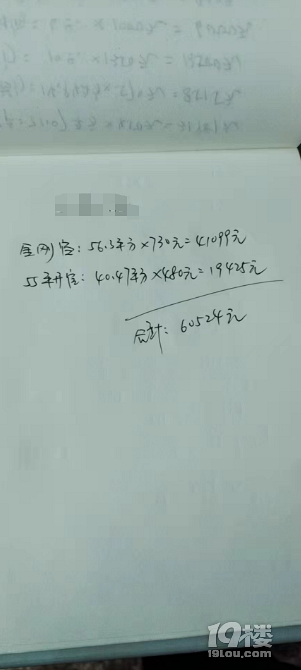 金刚窗：56.3平方×730元=41099元
55平开窗：40.47平方×480元=19425元
合计：60524元
19楼
19lou.com